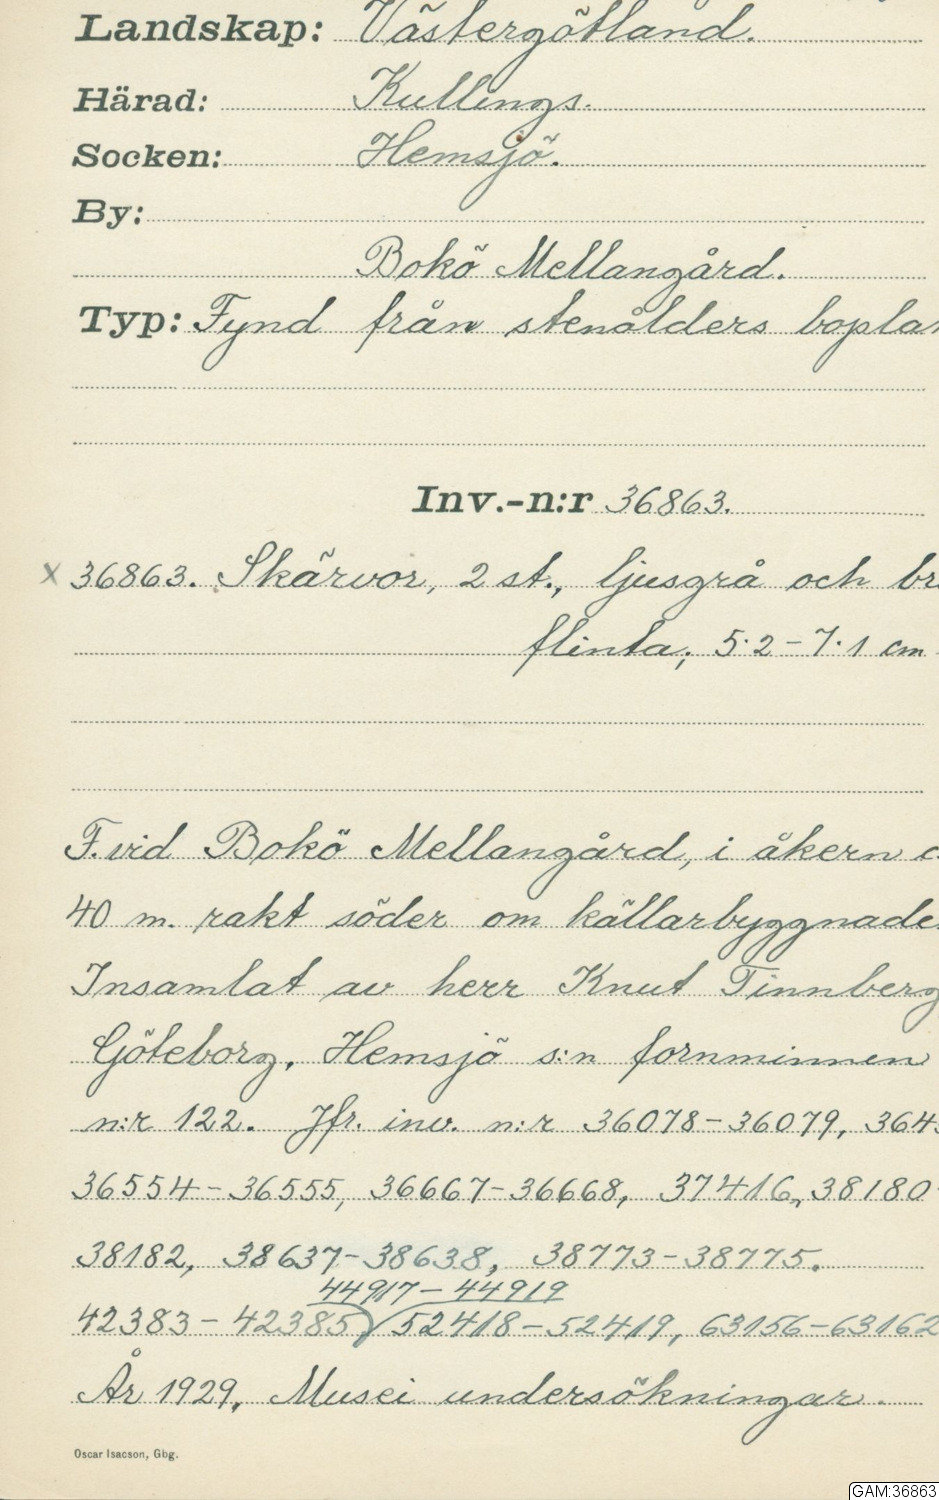 Landskap: Västergötland.
Härad: Kullings.
Socken: Hemsjö.
By:
Bokö Mellangård.
Typ: Fynd från stenålders bopla
Inv.-n:r 36863.
x 36863. Skärvor, 2 st., ljusgrå och br
flinta; 5.2-7.1 cm
F. vid Bokö Mellangård, i åkern c
40 m. rakt söder om källarbyggnade
Insamlat av herr Knut Tinnberg
Göteborg. Hemsjö s:n fornminnen
n:r 122. Jfr. inv. n:r 36078-36079, 364
36554-36555, 36667-36668, 37416, 38180-
38182, 38637-38638, 38773-38775.
44917-44919
42383-42385, 52418-52419, 63156-63162
År 1929. Musei undersökningar.
Oscar Isacson, Gbg.
GAM:36863